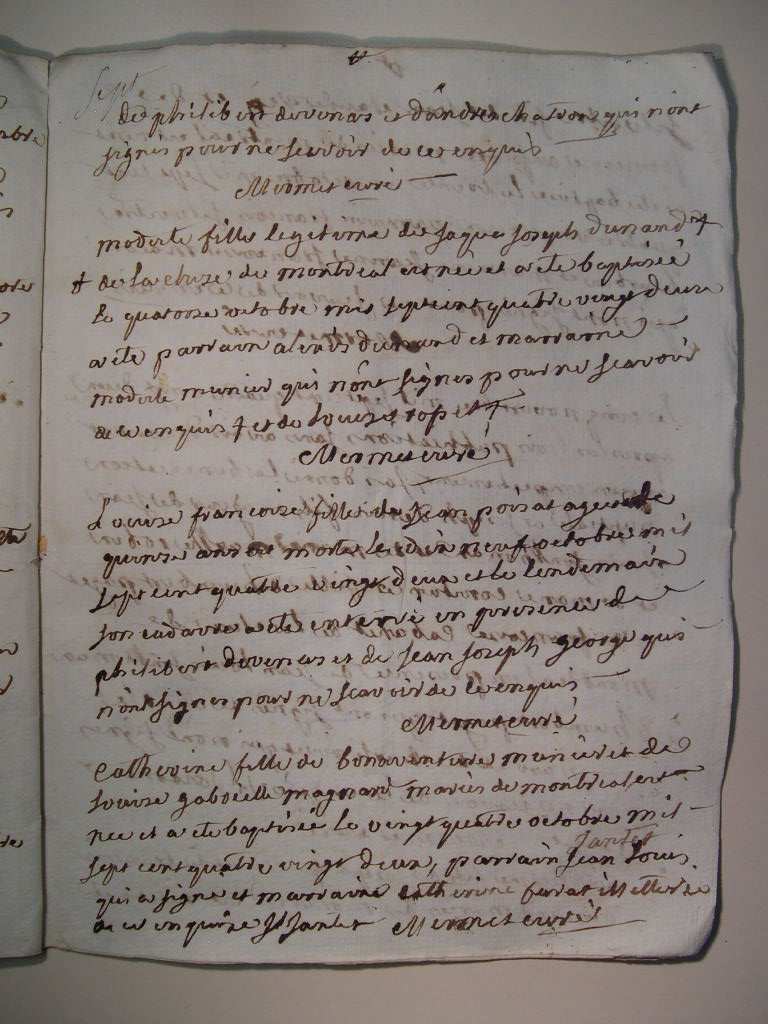 Sept
de philibert devenas et d'andrea chatron qui n'ont
signés pour ne scavoir de ce enquis
Mermet curé
modeste fille legitime de jaque joseph dunand +
+ de la cluze de montreal est née et a été baptisée
le quatorze octobre mil septcent quatre vingt deux
a été parrain alexis dunand et marraine
modeste munier qui n'ont signés pour ne scavoir
de ce enquis + et de Louize ropet +
Mermet curé
Louize francoize fille de jean poisat agée de
quinze ans est morte le dix neuf octobre mil
sept cent quatre vingt deux et le lendemain
son cadavre a été enterré en presence de
philibert devenas et de jean joseph george qui
n'ont signés pour ne scavoir de ce enquis
Mermet curé
Catherine fille de bonaventure munier et de
Louize gabrielle magnard mariés de montreal est
née et a été baptisée le vingt quatre octobre mil
Jantet
sept cent quatre vingt deux, parrain jean Louis
qui a signé et marraine catherine favat illetterée
de ce enquize Jl Jantet Mermet curé